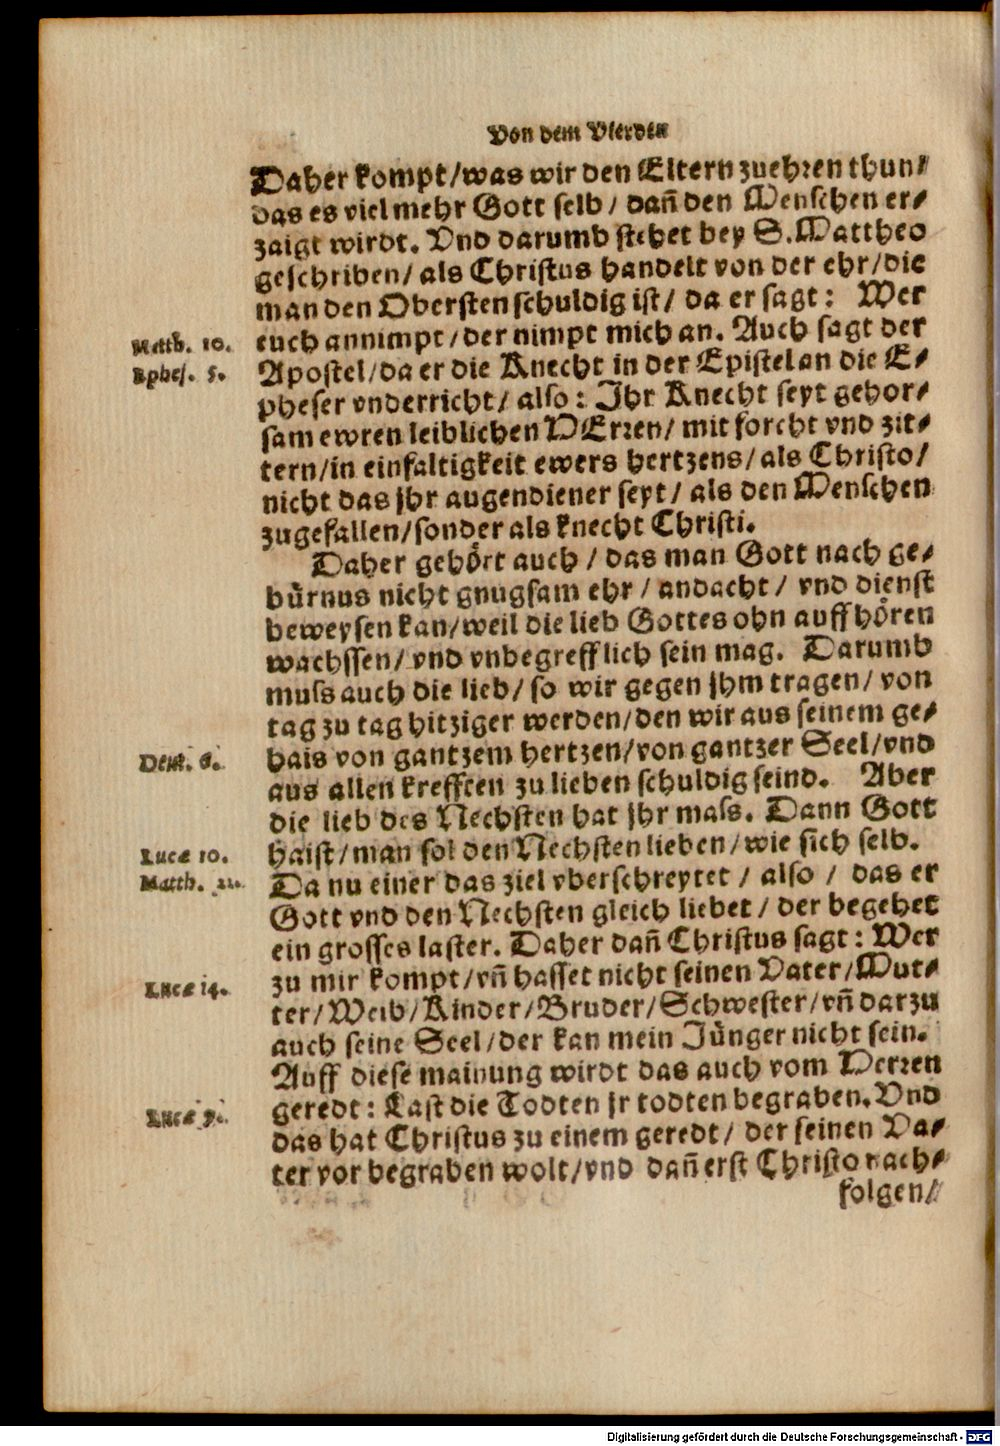 Von dem Vierden
Daher kompt/was wir den Eltern zuehren thun/
das es viel mehr Gott selb / dañ den Menschen er-
zaigt wirdt. Vnd darumb stehet bey S. Mattheo
geschriben/ als Christus handelt von der ehr/die
man den Obersten schuldig ist/ da er sagt: Wer
Matth. 10. euch annimpt/der nimpt mich an. Auch sagt der
Ephes. 5. Apostel/da er die Knecht in der Epistel an die E-
pheser vnderricht/ also: Ihr Knecht seyt gehor-
sam ewren leiblichen HErren/ mit forcht vnd zit-
tern/in einfaltigkeit ewers hertzens/als Christo/
nicht das jhr augendiener seyt/ als den Menschen
zugefallen/sonder als knecht Christi.
Daher gehört auch / das man Gott nach ge-
bürnus nicht gnugsam ehr / andacht / vnd dienst
beweysen kan/weil die lieb Gottes ohn auffhören
wachssen/ vnd vnbegrefflich sein mag. Darumb
muss auch die lieb/ so wir gegen jhm tragen/ von
tag zu tag hitziger werden/den wir aus seinem ge-
Deut. 6. hais von gantzem hertzen/von gantzer Seel/vnd
aus allen krefften zu lieben schuldig seind. Aber
die lieb des Nechsten hat jhr mass. Dann Gott
Lucæ 10. haist/man sol den Nechsten lieben/wie sich selb.
Matth. 22. Da nu einer das ziel vberschreytet / also / das er
Gott vnd den Nechsten gleich liebet / der begehet
ein grosses laster. Daher dañ Christus sagt: Wer
Lucæ 14. zu mir kompt/vñ hasset nicht seinen Vater/Mut-
ter/Weib/Kinder/Bruder/Schwester/vñ darzu
auch seine Seel/der kan mein Jünger nicht sein.
Auff diese mainung wirdt das auch vom Herren
Lucæ 9. geredt: Last die Todten jr todten begraben. Vnd
das hat Christus zu einem geredt/ der seinen Va-
ter vor begraben wolt/vnd dañ erst Christo nach-
folgen/
Digitalisierung gefördert durch die Deutsche Forschungsgemeinschaft - DFG